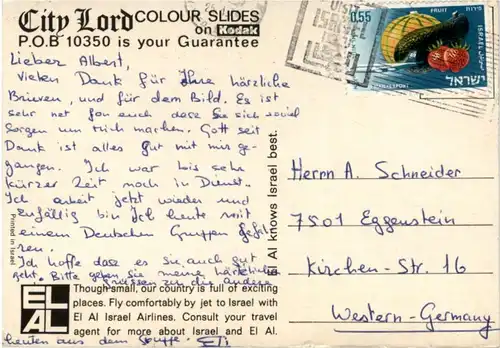 City Lord COLOUR SLIDES
on Kodak
P.O.B 10350 is your Guarantee
VISIT
ISRAEL
0.55
FRUIT פירות
ISRAEL
FOR EXPORT
ישראל
Lieber Albert,
Vielen Dank für Ihre härzliche
Brieven, und für dem Bild. Es ist
sehr net fon euch dass Sie sich soviel
sorgen um mich machen. Gott sei
Dank ist alles gut mit mir ge-
gangen. Ich war bis sehr
kürzer Zeit noch in Dienst.
Ich arbeit jetzt wieder und
zufällig bin Ich heute mit
einem Deutschen Gruppen gefah-
ren.
Ich hoffe dass es Sie auch gut
geht. Bitte geben Sie meine härtzlichen
grüssen zu die andere
Leuten aus dem Gruppe. Eli
Herrn A. Schneider
7501 Eggenstein
Kirchen-Str. 16
Western-Germany
El Al knows Israel best.
Printed in Israel
EL
AL
Though small, our country is full of exciting
places. Fly comfortably by jet to Israel with
El Al Israel Airlines. Consult your travel
agent for more about Israel and El Al.